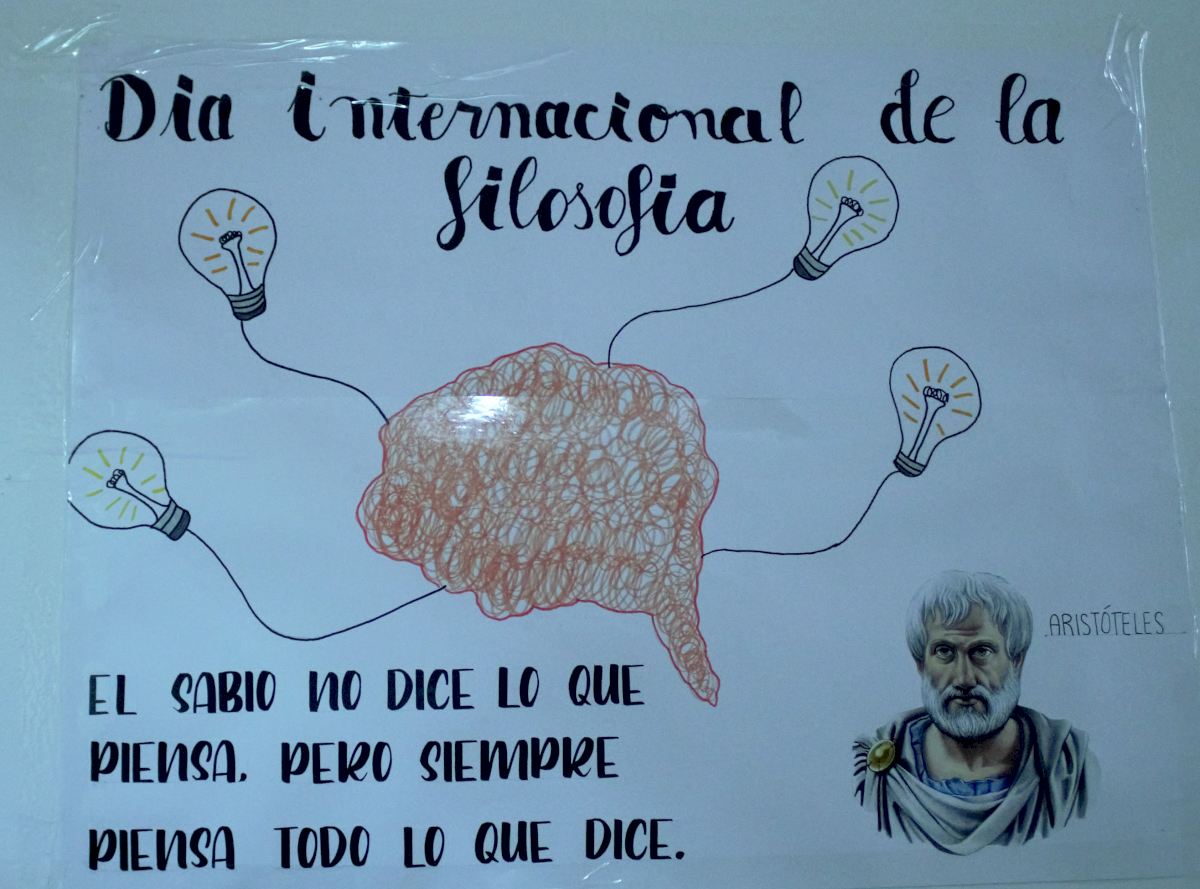 Dia internacional de la
filosofia
ARISTÓTELES
EL SABIO NO DICE LO QUE
PIENSA, PERO SIEMPRE
PIENSA TODO LO QUE DICE.